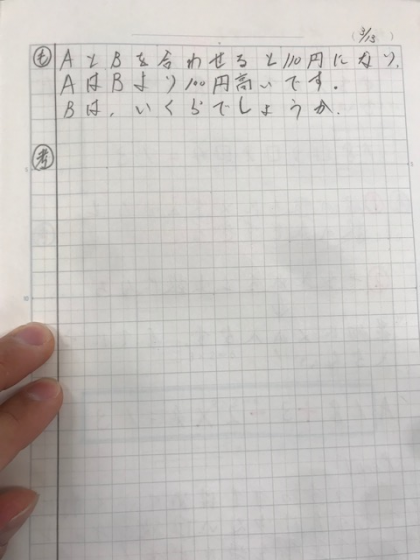 3/13
も AとBを合わせると110円になり、
AはBより100円高いです。
Bは、いくらでしょうか。
考